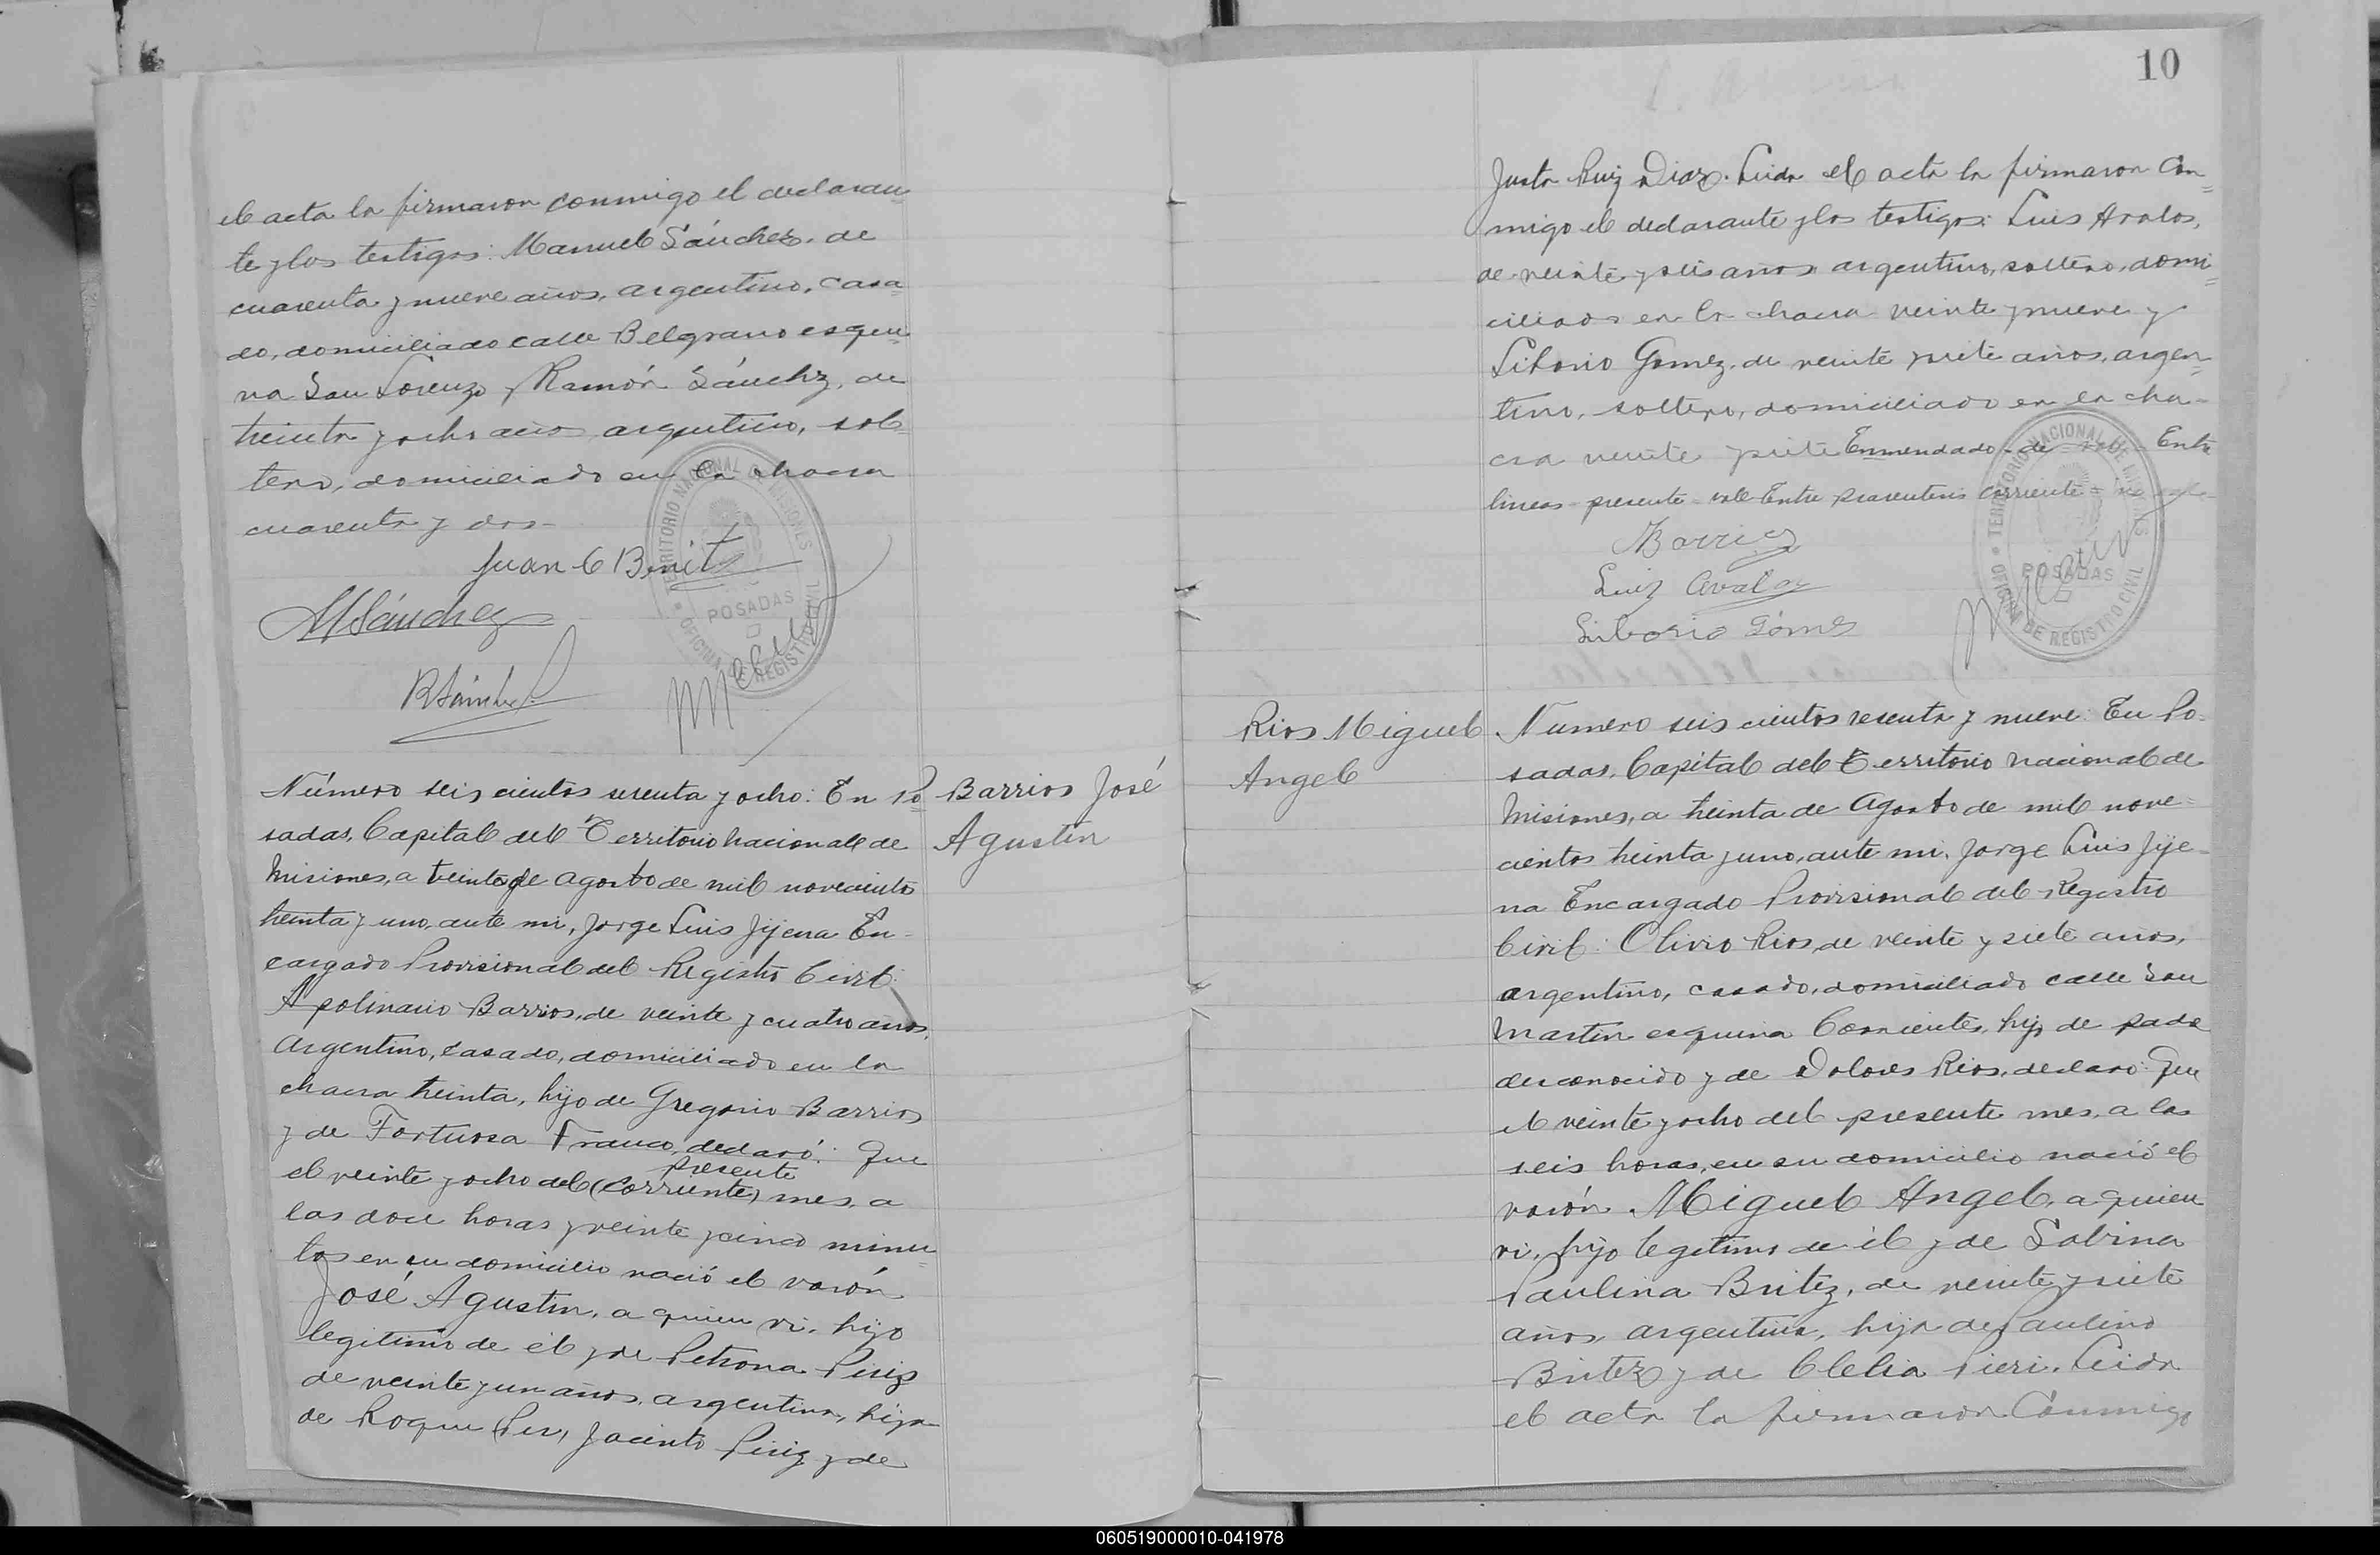 el acta la firmaron conmigo el declaran=
te y los testigos: Manuel Sánchez, de
cuarenta y nueve años, argentino, casa=
do, domiciliado calle Belgrano esqui=
na San Lorenzo y Ramón Sánchez, de
treinta y ocho años argentino, sol=
tero, domiciliado en la chacra
cuarenta y dos-
Juan C Benit
MSánchez
RSánchez
TERRITORIO NACIONAL DE MISIONES
POSADAS
OFICINA DE REGISTRO CIVIL
Número seis cientos sesenta y ocho: En Po=
sadas, Capital del Territorio nacional de
Misiones, a treinta de agosto de mil novecientos
treinta y uno, ante mi, Jorge Luis Jijena En-
cargado Provisional del Registro Civil:
Apolinario Barrios, de veinte y cuatro años,
argentino, casado, domiciliado en la
chacra treinta, hijo de Gregorio Barrios
y de Fortuosa Franco, declaró: Que
presente
el veinte y ocho del (corriente) mes, a
las doce horas y veinte y cinco minu=
tos en su domicilio nació el varón
José Agustin, a quien vi, hijo
legitimo de él y de Petrona Piriz
de veinte y un años, argentina, hija
de Roque Jacinto Piriz y de
Barrios José
Agustin
10
Justa Ruiz Diaz. Leida el acta la firmaron con=
migo el declarante y los testigos: Luis Avalos,
de veinte y seis años argentino, soltero, domi=
ciliado en la chacra veinte y nueve y
Liborio Gomez, de veinte y siete años, argen=
tino, soltero, domiciliado en la cha-
cra veinte y siete Enmendado-de-vale-Entre
lineas-presente-vale-Entre parentesis corriente= no vale-
ABarrios
Luiz Avalos
Liborio Gómes
TERRITORIO NACIONAL DE MISIONES
POSADAS
OFICINA DE REGISTRO CIVIL
Rios Miguel
Angel
Numero seis cientos sesenta y nueve: En Po-
sadas, Capital del Territorio nacional de
Misiones, a treinta de Agosto de mil nove=
cientos treinta y uno, ante mi, Jorge Luis Jije-
na Encargado Provisional del Registro
Civil: Olivio Rios, de veinte y siete años,
argentino, casado, domiciliado calle San
Martin esquina Corrientes, hijo de padre
desconocido y de Dolores Rios, declaró: Que
el veinte y ocho del presente mes, a las
seis horas, en su domicilio nació el
varón Miguel Angel, a quien
vi, hijo legitimo de él y de Sabina
Paulina Britez, de veinte y siete
años, argentina, hija de Paulino
Britez y de Clelia Pieri. Leida
el acta la firmaron Conmigo
060519000010-041978